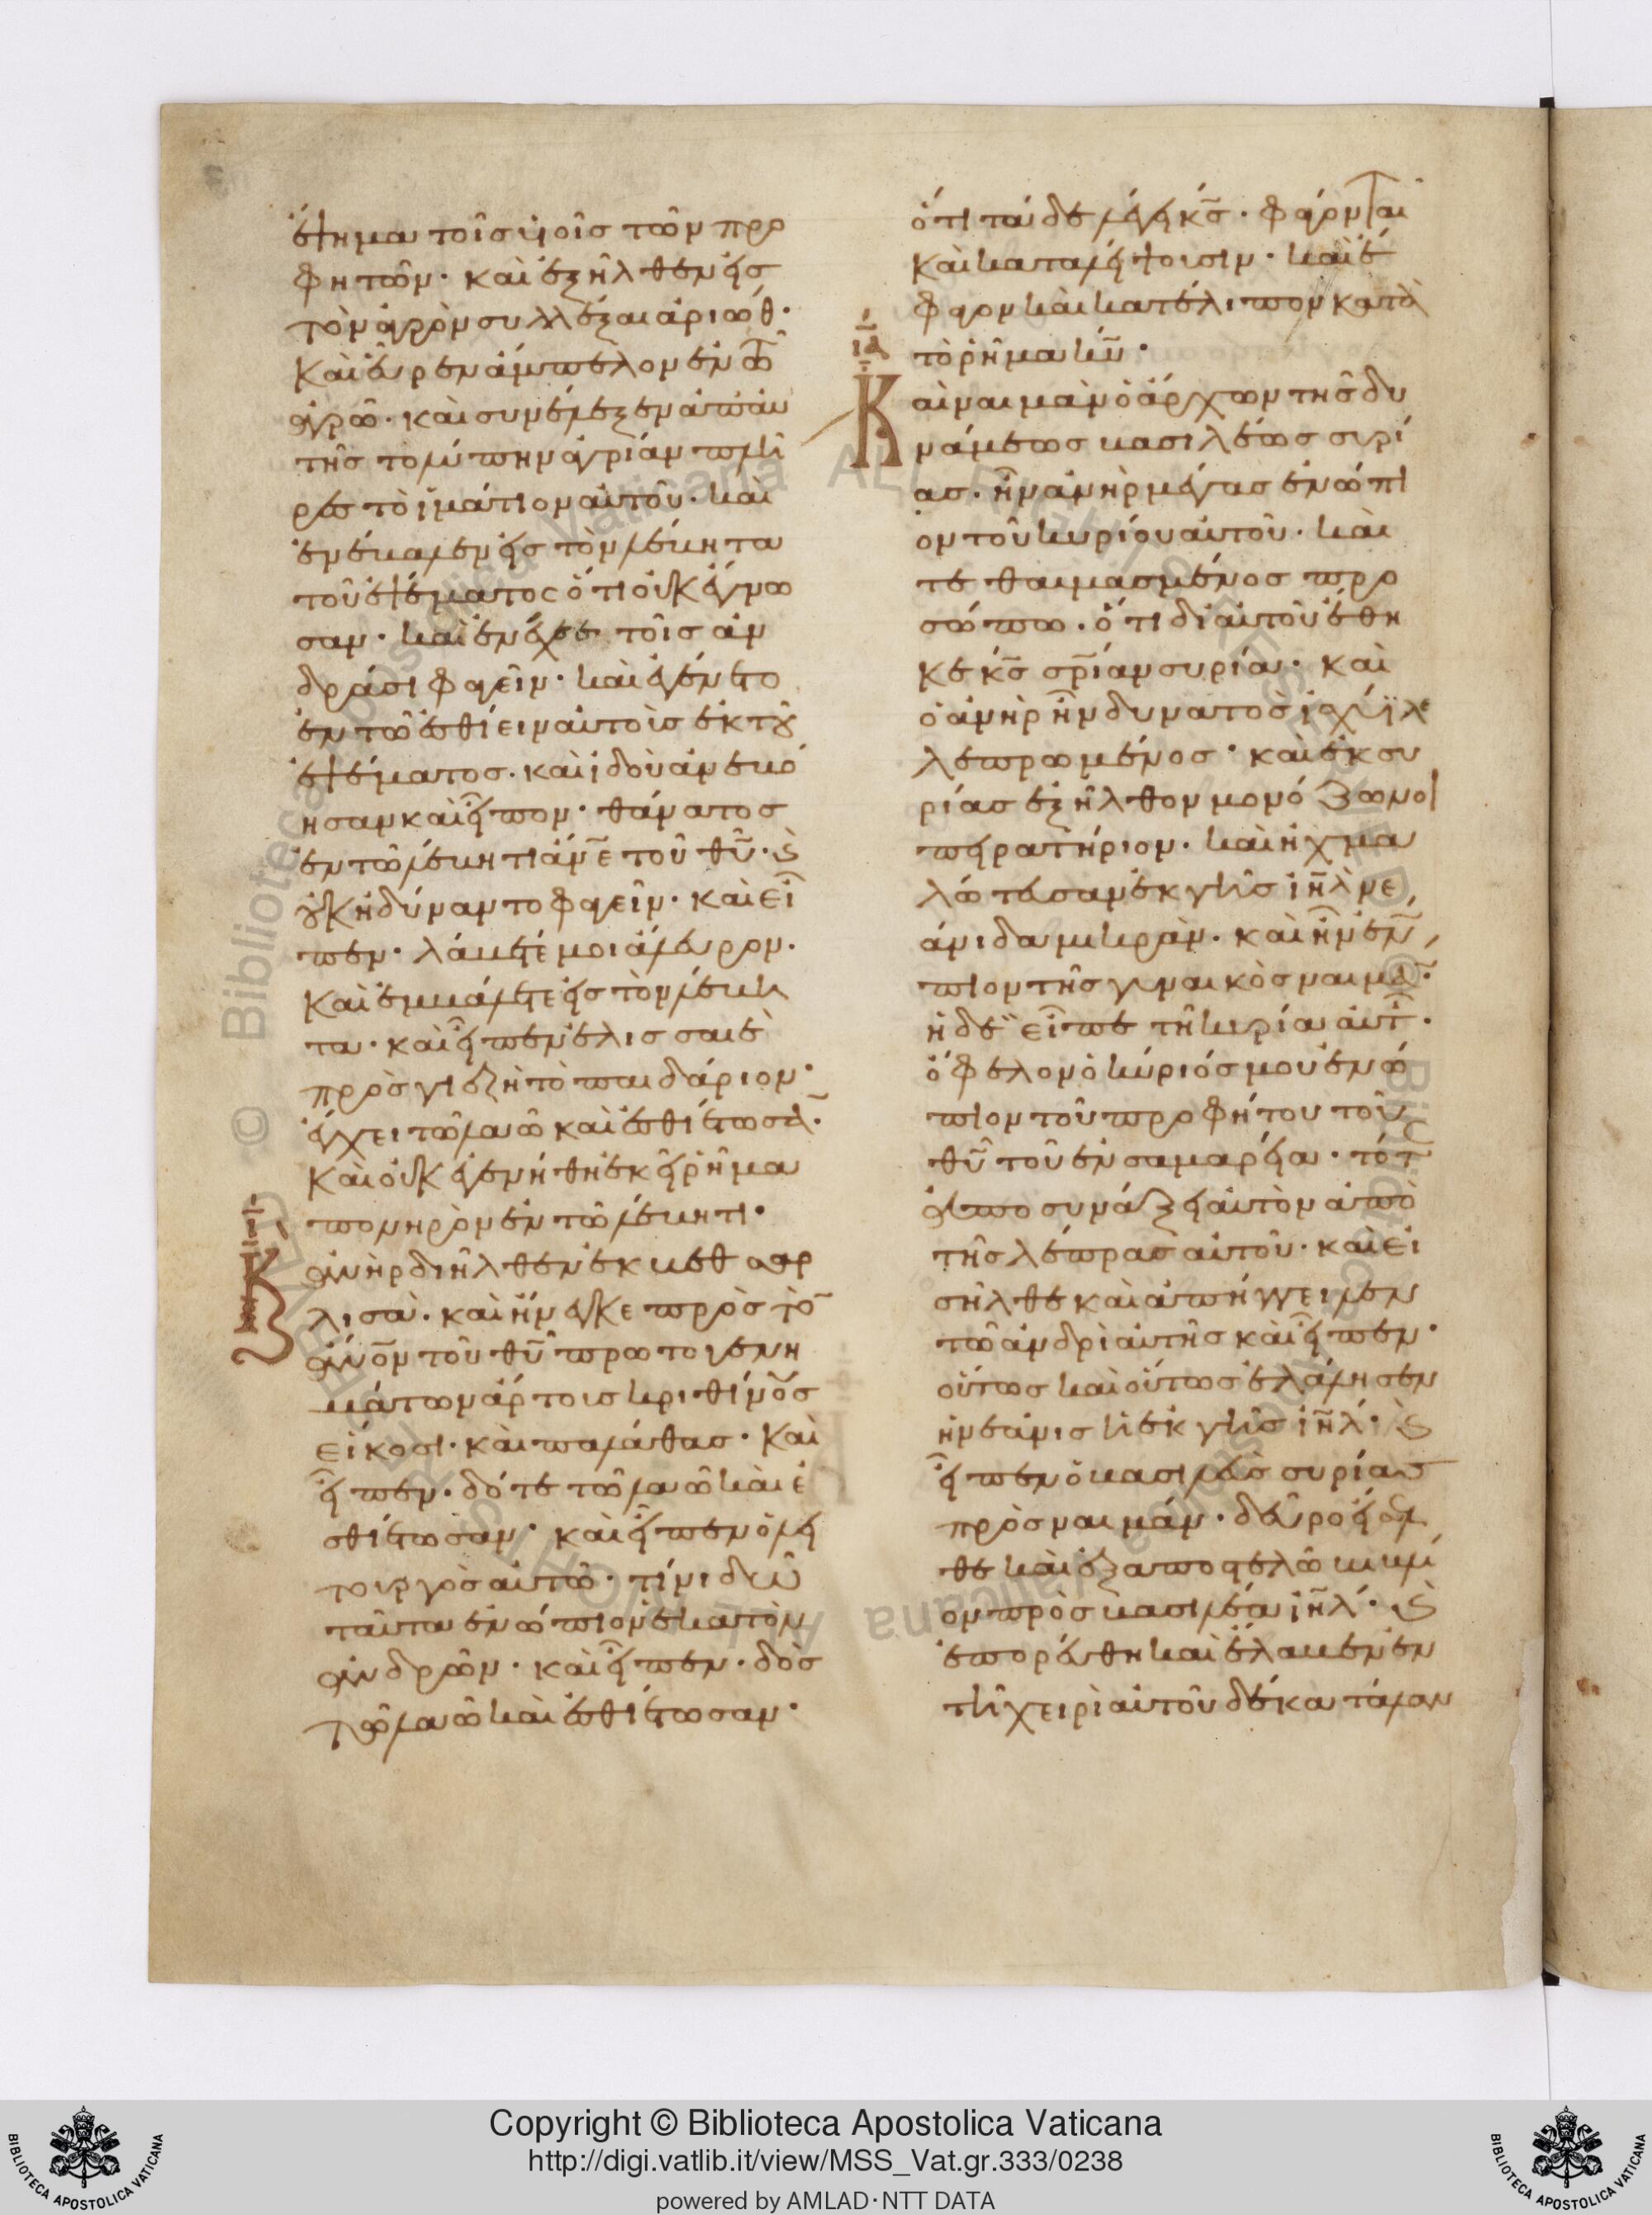 ἕψημα τοῖς υἱοῖς τῶν προ
φητῶν· καὶ ἐξῆλθεν εἰς
τὸν ἀγρὸν συλλέξαι ἀριώθ·
Καὶ εὗρεν ἄμπελον ἐν τῶ
ἀγρῶ· καὶ συνέλεξεν ἀπ' αυ
τῆς τολύπην ἀγρίαν πλή
ρες τὸ ἱμάτιον αὐτοῦ· καὶ
ἐνέβαλεν εἰς τὸν λέβητα
τοῦ ἑψέματος ὅτι οὐκ ἔγνω
σαν· καὶ ἐνέχεε τοῖς ἀν
δράσι φαγεῖν· καὶ ἐγένετο
ἐν τῶ ἐσθίειν αὐτοὺς ἐκ τοῦ
ἑψέματος· καὶ ἰδοὺ ἀνεβό
ησαν καὶ εἶπον· θάνατος
ἐν τῶ λέβητι ἄνε τοῦ θῦ· καὶ
οὐκ ἠδύναντο φαγεῖν· καὶ εἶ
πεν· λάβετέ μοι ἄλευρον·
Καὶ ἐμβάλετε εἰς τὸν λέβη
τα· καὶ εἶπεν ἐλισσαιὲ
πρὸς γιεζῆ τὸ παιδάριον·
ἔγχει τῶ λαῶ καὶ ἐσθιέτωσα·
Καὶ οὐκ ἐγενήθη ἐκεῖ ῥῆμα
πονηρὸν ἐν τῶ λέβητι·
Καὶ
ἀνὴρ διῆλθεν ἐκ βεθσαρ
λισὰ· καὶ ἤνεγκε πρὸς τὸ
ἄνον τοῦ θῦ πρωτογενη
μάτων ἄρτους κριθίνους
εἴκοσι· καὶ παλάθας· Καὶ
εἶπεν· δότε τῶ λαῶ καὶ ἐ
σθιέτωσαν· καὶ εἶπεν ὁ λει
τουργὸς αὐτῶ· τί μὴ δῶ
ταῦτα ἐνώπιον ἑκατὸν
ἀνδρῶν· καὶ εἶπεν· δὸς
τῶ λαῶ καὶ ἐσθιέτωσαν·
ὅτι τάδε λέγει κς· φάγονται
καὶ καταλείψουσιν· καὶ ἔ
φαγον καὶ κατέλιπον κατὰ
τὸ ῥῆμα κῦ·
ιδ
Καὶ ναιμὰν ὁ ἄρχων τῆς δυ
νάμεως βασιλέως συρί
ας· ἦν ἀνὴρ μέγας ἐνώπι
ον τοῦ κυρίου αὐτοῦ· καὶ
τεθαυμασμένος προ
σώπω· ὅτι δι αὐτοῦ ἔθη
κε κς σριαν συρία· καὶ
ὁ ἀνὴρ ἦν δυνατὸς ἰσχύϊ λε
λεπρωμένος· καὶ ἐκ συ
ρίας ἐξῆλθον μονόζωνοι
πειρατήριον· καὶ ἠχμα
λώτευσαν ἐκ γῆς ιηλ νε
άνιδα μικράν· καὶ ἦν ἐνώ
πιον τῆς γυναικὸς ναιμὰ·
ἡ δὲ εἶπε τῆ κυρία αὐτῆς·
ὄφελον ὁ κύριός μου ἐνώ
πιον τοῦ προφήτου τοῦ
θῦ τοῦ ἐν σαμαρεία· τότε
ἀποσυνάξει αὐτὸν ἀπὸ
τῆς λέπρας αὐτοῦ· καὶ εἰ
σῆλθε καὶ ἀπήγγειλεν
τῶ ἀνδρὶ αὐτῆς καὶ εἶπεν·
οὕτως καὶ οὕτως ἐλάλησεν
ἡ νεᾶνις ἡ ἐκ γῆς ιηλ· καὶ
εἶπεν ὁ βασιλεὺς συρίας
πρὸς ναιμάν· δεῦρο εἴσελ
θε καὶ ἐξαποστελῶ βιβλί
ον πρὸς βασιλέα ιηλ· καὶ
ἐπορεύθη καὶ ἔλαβεν ἐν
τῆ χειρὶ αὐτοῦ δέκα τάλαν
Copyright © Biblioteca Apostolica Vaticana
http://digi.vatlib.it/view/MSS_Vat.gr.333/0238
powered by AMLAD·NTT DATA
BIBLIOTECA APOSTOLICA VATICANA
BIBLIOTECA APOSTOLICA VATICANA